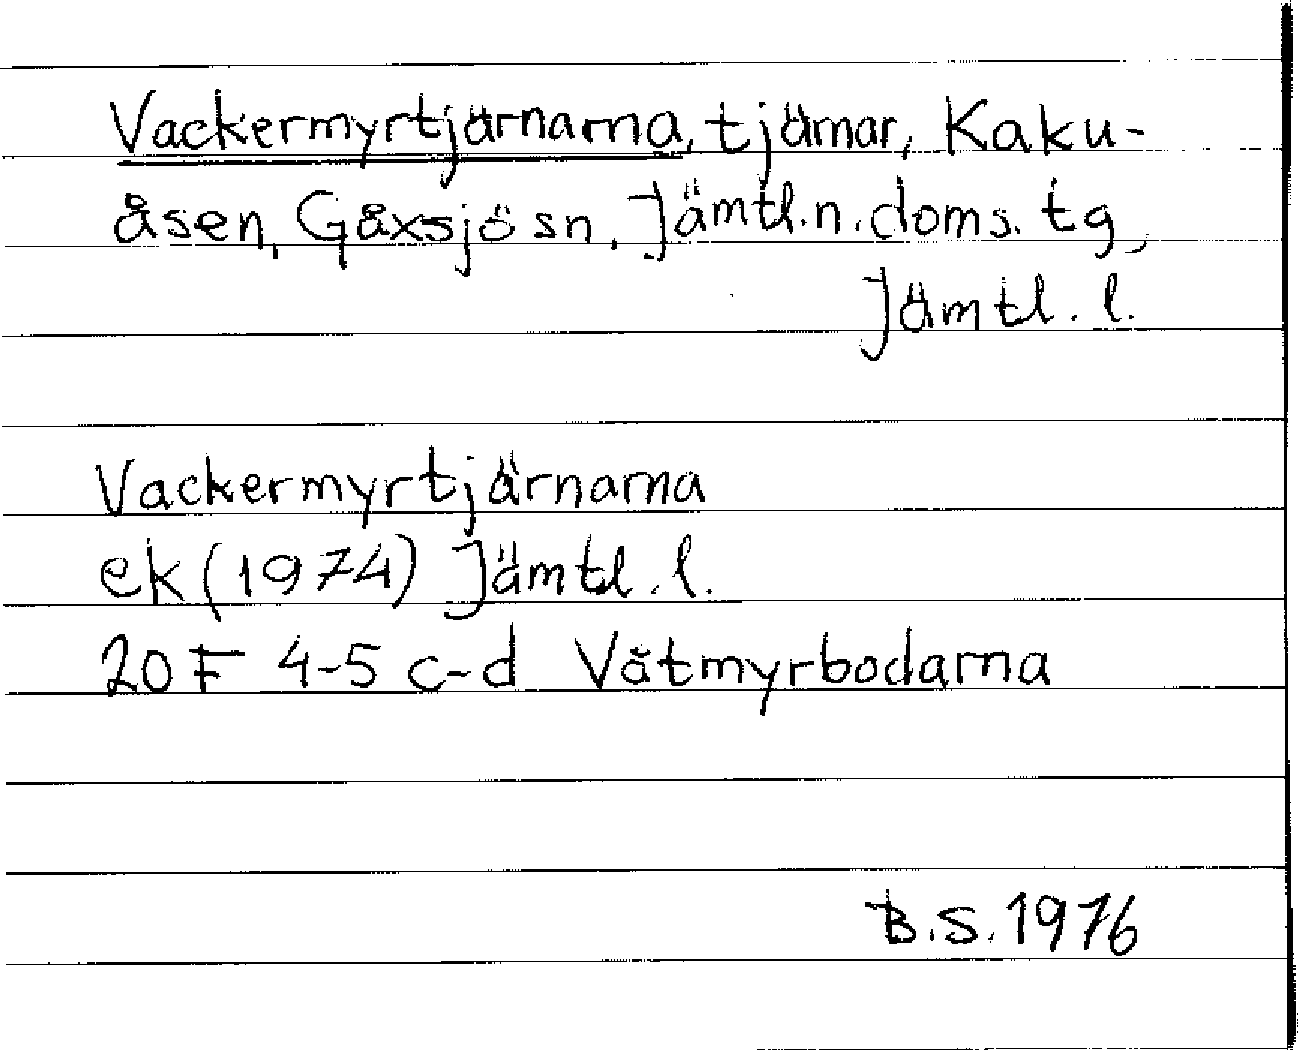 Vackermyrtjärnarna, tjärnar, Kaku-
åsen, Gåxsjö sn. Jämtl.n.doms.tg,
Jämtl.l.
Vackermyrtjärnarna
ek(1974) Jämtl.l.
20F 4-5 c-d Våtmyrbodarna
B.S.1976